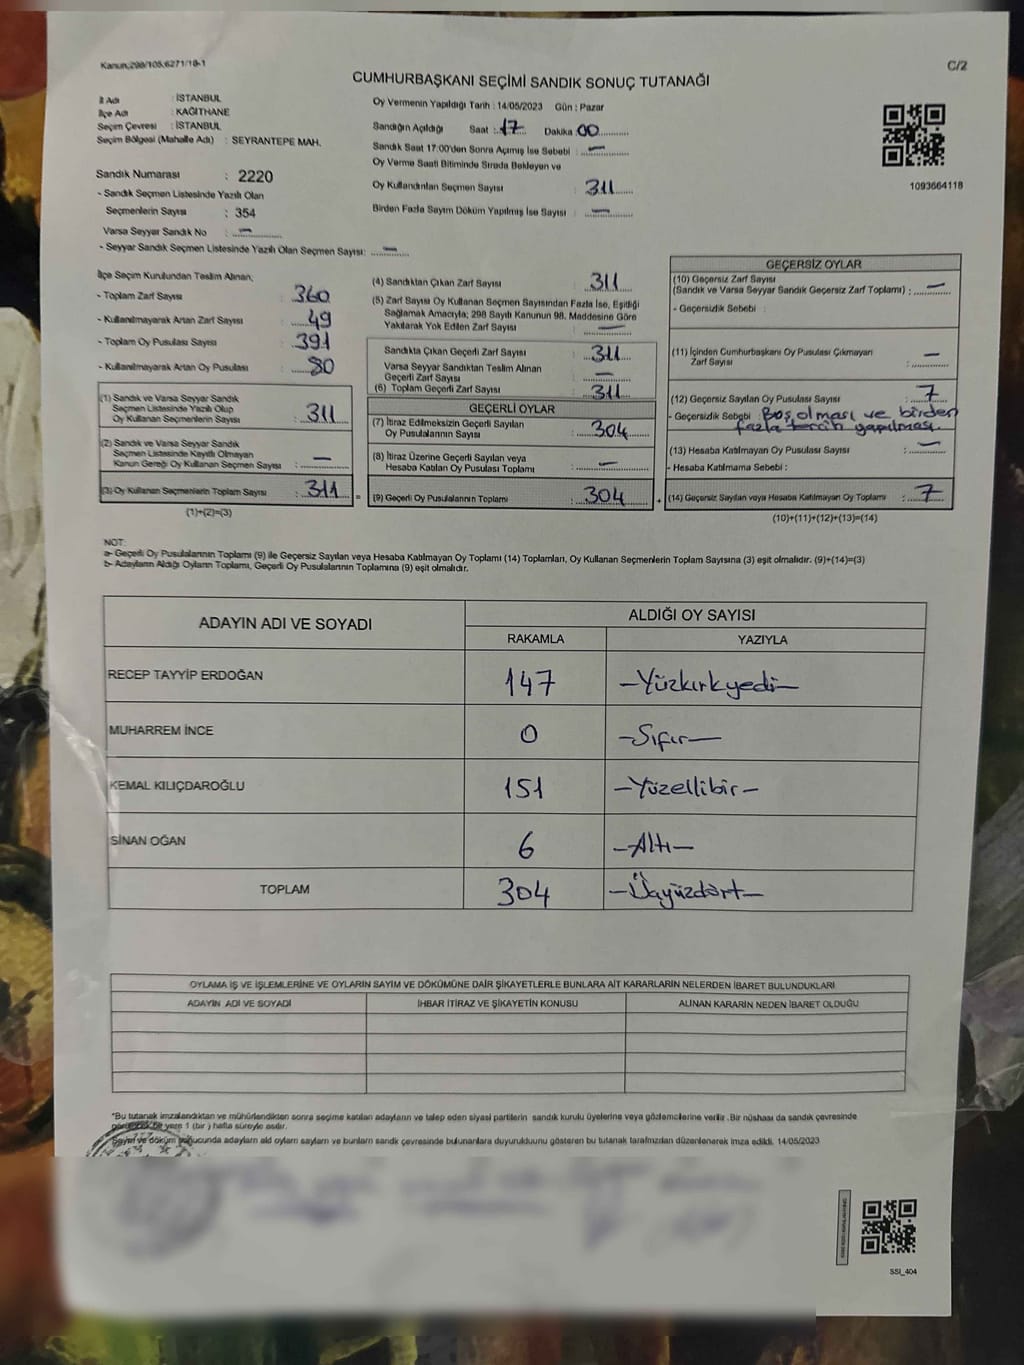 Kanun;298/105,6271/18-1
C/2
CUMHURBAŞKANI SEÇİMİ SANDIK SONUÇ TUTANAĞI
İl Adı : İSTANBUL
İlçe Adı : KAĞITHANE
Seçim Çevresi : İSTANBUL
Seçim Bölgesi (Mahalle Adı) : SEYRANTEPE MAH.
Sandık Numarası : 2220
- Sandık Seçmen Listesinde Yazılı Olan
Seçmenlerin Sayısı : 354
Varsa Seyyar Sandık No : —
- Seyyar Sandık Seçmen Listesinde Yazılı Olan Seçmen Sayısı: —
Oy Vermenin Yapıldığı Tarih : 14/05/2023 Gün : Pazar
Sandığın Açıldığı Saat : 17 Dakika 00
Sandık Saat 17:00'den Sonra Açımış İse Sebebi : —
Oy Verme Saati Bitiminde Sırada Bekleyen ve
Oy Kullandırılan Seçmen Sayısı : 311
Birden Fazla Sayım Döküm Yapılmış İse Sayısı : —
1093664118
İlçe Seçim Kurulundan Teslim Alınan;
- Toplam Zarf Sayısı : 360
- Kullanılmayarak Artan Zarf Sayısı : 49
- Toplam Oy Pusulası Sayısı : 391
- Kullanılmayarak Artan Oy Pusulası : 80
(1) Sandık ve Varsa Seyyar Sandık
Seçmen Listesinde Yazılı Olup
Oy Kullanan Seçmen Sayısı : 311
(2) Sandık ve Varsa Seyyar Sandık
Seçmen Listesinde Kayıtlı Olmayan
Kanun Gereği Oy Kullanan Seçmen Sayısı : —
(3) Oy Kullanan Seçmenlerin Toplam Sayısı : 311 =
(1)+(2)=(3)
(4) Sandıktan Çıkan Zarf Sayısı : 311
(5) Zarf Sayısı Oy Kullanan Seçmen Sayısından Fazla İse, Eşitliği
Sağlamak Amacıyla; 298 Sayılı Kanunun 98. Maddesine Göre
Yakılarak Yok Edilen Zarf Sayısı : —
Sandıkta Çıkan Geçerli Zarf Sayısı : 311
Varsa Seyyar Sandıktan Teslim Alınan
Geçerli Zarf Sayısı : —
(6) Toplam Geçerli Zarf Sayısı : 311
GEÇERLİ OYLAR
(7) İtiraz Edilmeksizin Geçerli Sayılan
Oy Pusulalarının Sayısı : 304
(8) İtiraz Üzerine Geçerli Sayılan veya
Hesaba Katılan Oy Pusulası Toplamı : —
(9) Geçerli Oy Pusulalarının Toplamı : 304 +
GEÇERSİZ OYLAR
(10) Geçersiz Zarf Sayısı
(Sandık ve Varsa Seyyar Sandık Geçersiz Zarf Toplamı) : —
- Geçersizlik Sebebi :
(11) İçinden Cumhurbaşkanı Oy Pusulası Çıkmayan
Zarf Sayısı : —
(12) Geçersiz Sayılan Oy Pusulası Sayısı : 7
- Geçersizlik Sebebi : Boş olması ve birden
fazla tercih yapılması.
(13) Hesaba Katılmayan Oy Pusulası Sayısı : —
- Hesaba Katılmama Sebebi :
(14) Geçersiz Sayılan veya Hesaba Katılmayan Oy Toplamı : 7
(10)+(11)+(12)+(13)=(14)
NOT:
a- Geçerli Oy Pusulalarının Toplamı (9) ile Geçersiz Sayılan veya Hesaba Katılmayan Oy Toplamı (14) Toplamları, Oy Kullanan Seçmenlerin Toplam Sayısına (3) eşit olmalıdır. (9)+(14)=(3)
b- Adayların Aldığı Oyların Toplamı, Geçerli Oy Pusulalarının Toplamına (9) eşit olmalıdır.
ADAYIN ADI VE SOYADI
ALDIĞI OY SAYISI
RAKAMLA YAZIYLA
RECEP TAYYİP ERDOĞAN 147 —Yüzkırkyedi—
MUHARREM İNCE 0 —Sıfır—
KEMAL KILIÇDAROĞLU 151 —Yüzellibir—
SİNAN OĞAN 6 —Altı—
TOPLAM 304 —Üçyüzdört—
OYLAMA İŞ VE İŞLEMLERİNE VE OYLARIN SAYIM VE DÖKÜMÜNE DAİR ŞİKAYETLERLE BUNLARA AİT KARARLARIN NELERDEN İBARET BULUNDUKLARI
ADAYIN ADI VE SOYADI İHBAR İTİRAZ VE ŞİKAYETİN KONUSU ALINAN KARARIN NEDEN İBARET OLDUĞU
*Bu tutanak imzalandıktan ve mühürlendikten sonra seçime katılan adayların ve talep eden siyasi partilerin sandık kurulu üyelerine veya gözlemcilerine verilir. Bir nüshası da sandık çevresinde
bir yere 1 (bir) hafta süreyle asılır.
Sayım ve döküm sonucunda adayların aldı oyların sayılarını ve bunların sandık çevresinde bulunanlara duyurulduunu gösteren bu tutanak tarafımızdan düzenlenerek imza edildi. 14/05/2023
SSI_404